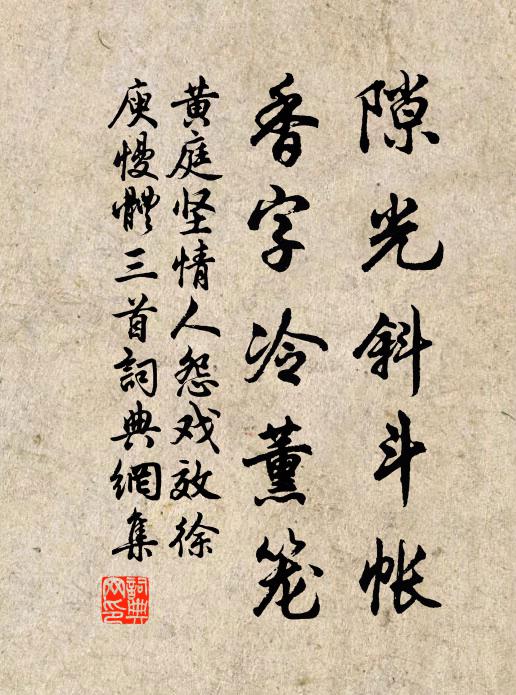 隙光斜斗帐
香字冷薰笼
黄庭坚情人怨戏效徐
庾慢體三首詞典網集